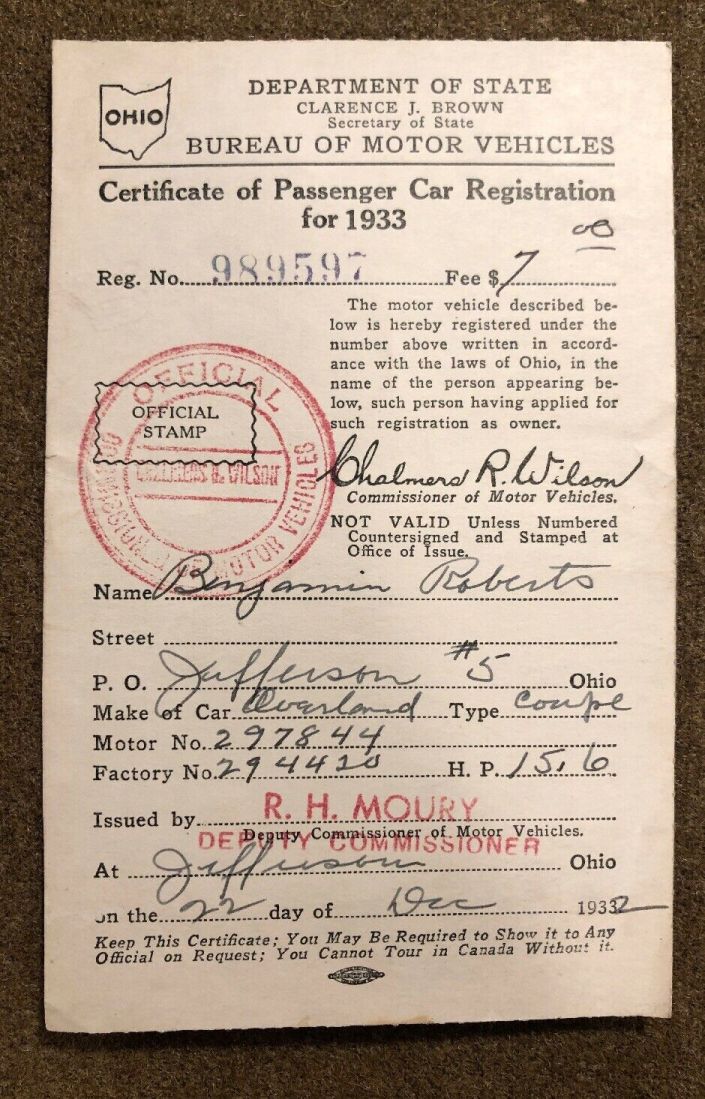 OHIO
DEPARTMENT OF STATE
CLARENCE J. BROWN
Secretary of State
BUREAU OF MOTOR VEHICLES
Certificate of Passenger Car Registration
for 1933
Reg. No. 989597 Fee $ 7 00
The motor vehicle described be-
low is hereby registered under the
number above written in accord-
ance with the laws of Ohio, in the
name of the person appearing be-
low, such person having applied for
such registration as owner.
OFFICIAL
OFFICIAL
STAMP
CHALMERS R. WILSON
MOTOR VEHICLES
Chalmers R. Wilson
Commissioner of Motor Vehicles.
NOT VALID Unless Numbered
Countersigned and Stamped at
Office of Issue.
Name Benjamin Roberts
Street
P. O. Jefferson #5 Ohio
Make of Car Overland Type Coupe
Motor No. 297844
Factory No. 294420 H. P. 15.6
Issued by R. H. MOURY
Deputy Commissioner of Motor Vehicles.
DEPUTY COMMISSIONER
At Jefferson Ohio
on the 22 day of Dec 1932
Keep This Certificate; You May Be Required to Show it to Any
Official on Request; You Cannot Tour in Canada Without it.